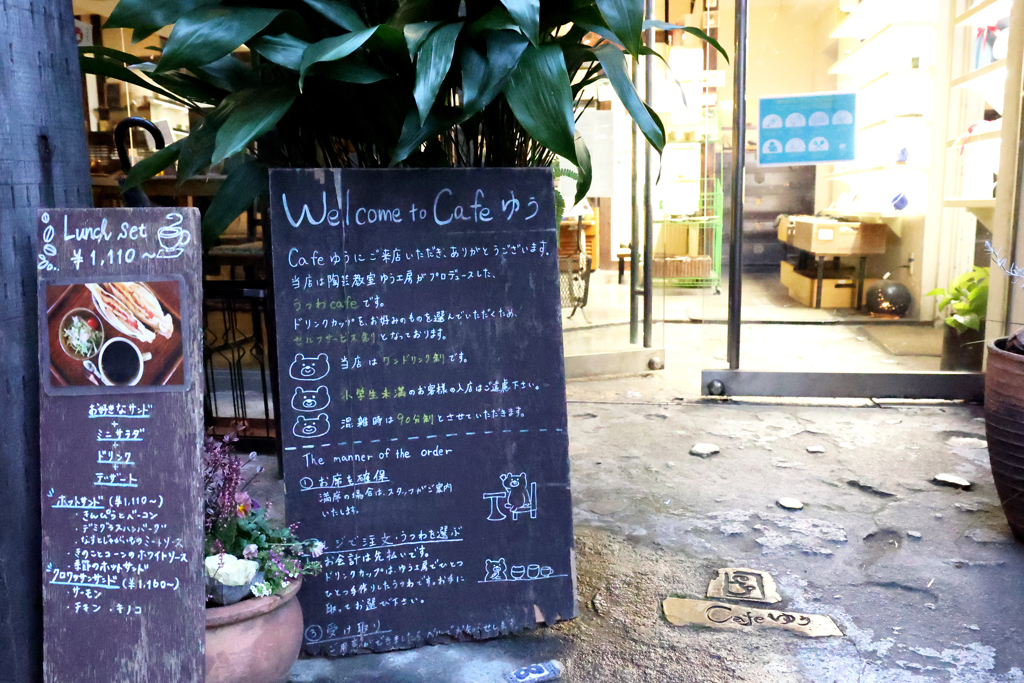 Lunch set
¥1,110~
お好きなサンド
+
ミニサラダ
+
ドリンク
+
デザート
ホットサンド(¥1,110~)
・きんぴらとベーコン
・デミグラスハンバーグ
・なすとしめじのミートソース
・きのことコーンのホワイトソース
・季節のホットサンド
クロワッサンサンド(¥1,160~)
・サーモン
・チキン ・キノコ
Welcome to Cafe ゆう
Cafe ゆうにご来店いただき、ありがとうございます。
当店は陶芸教室ゆう工房がプロデュースした、
うつわcafeです。
ドリンクカップを、お好みのものを選んでいただくため、
セルフサービス制となっております。
当店はワンドリンク制です。
小学生未満のお客様の入店はご遠慮下さい。
混雑時は90分制とさせていただきます。
The manner of the order
① お席を確保
満席の場合は、スタッフがご案内
いたします。
ジで注文・うつわを選ぶ
お会計は先払いです。
ドリンクカップは、ゆう工房でひとつ
ひとつ手作りしたうつわです。お手に
取ってお選び下さい。
③ 受け取り
Cafe ゆう